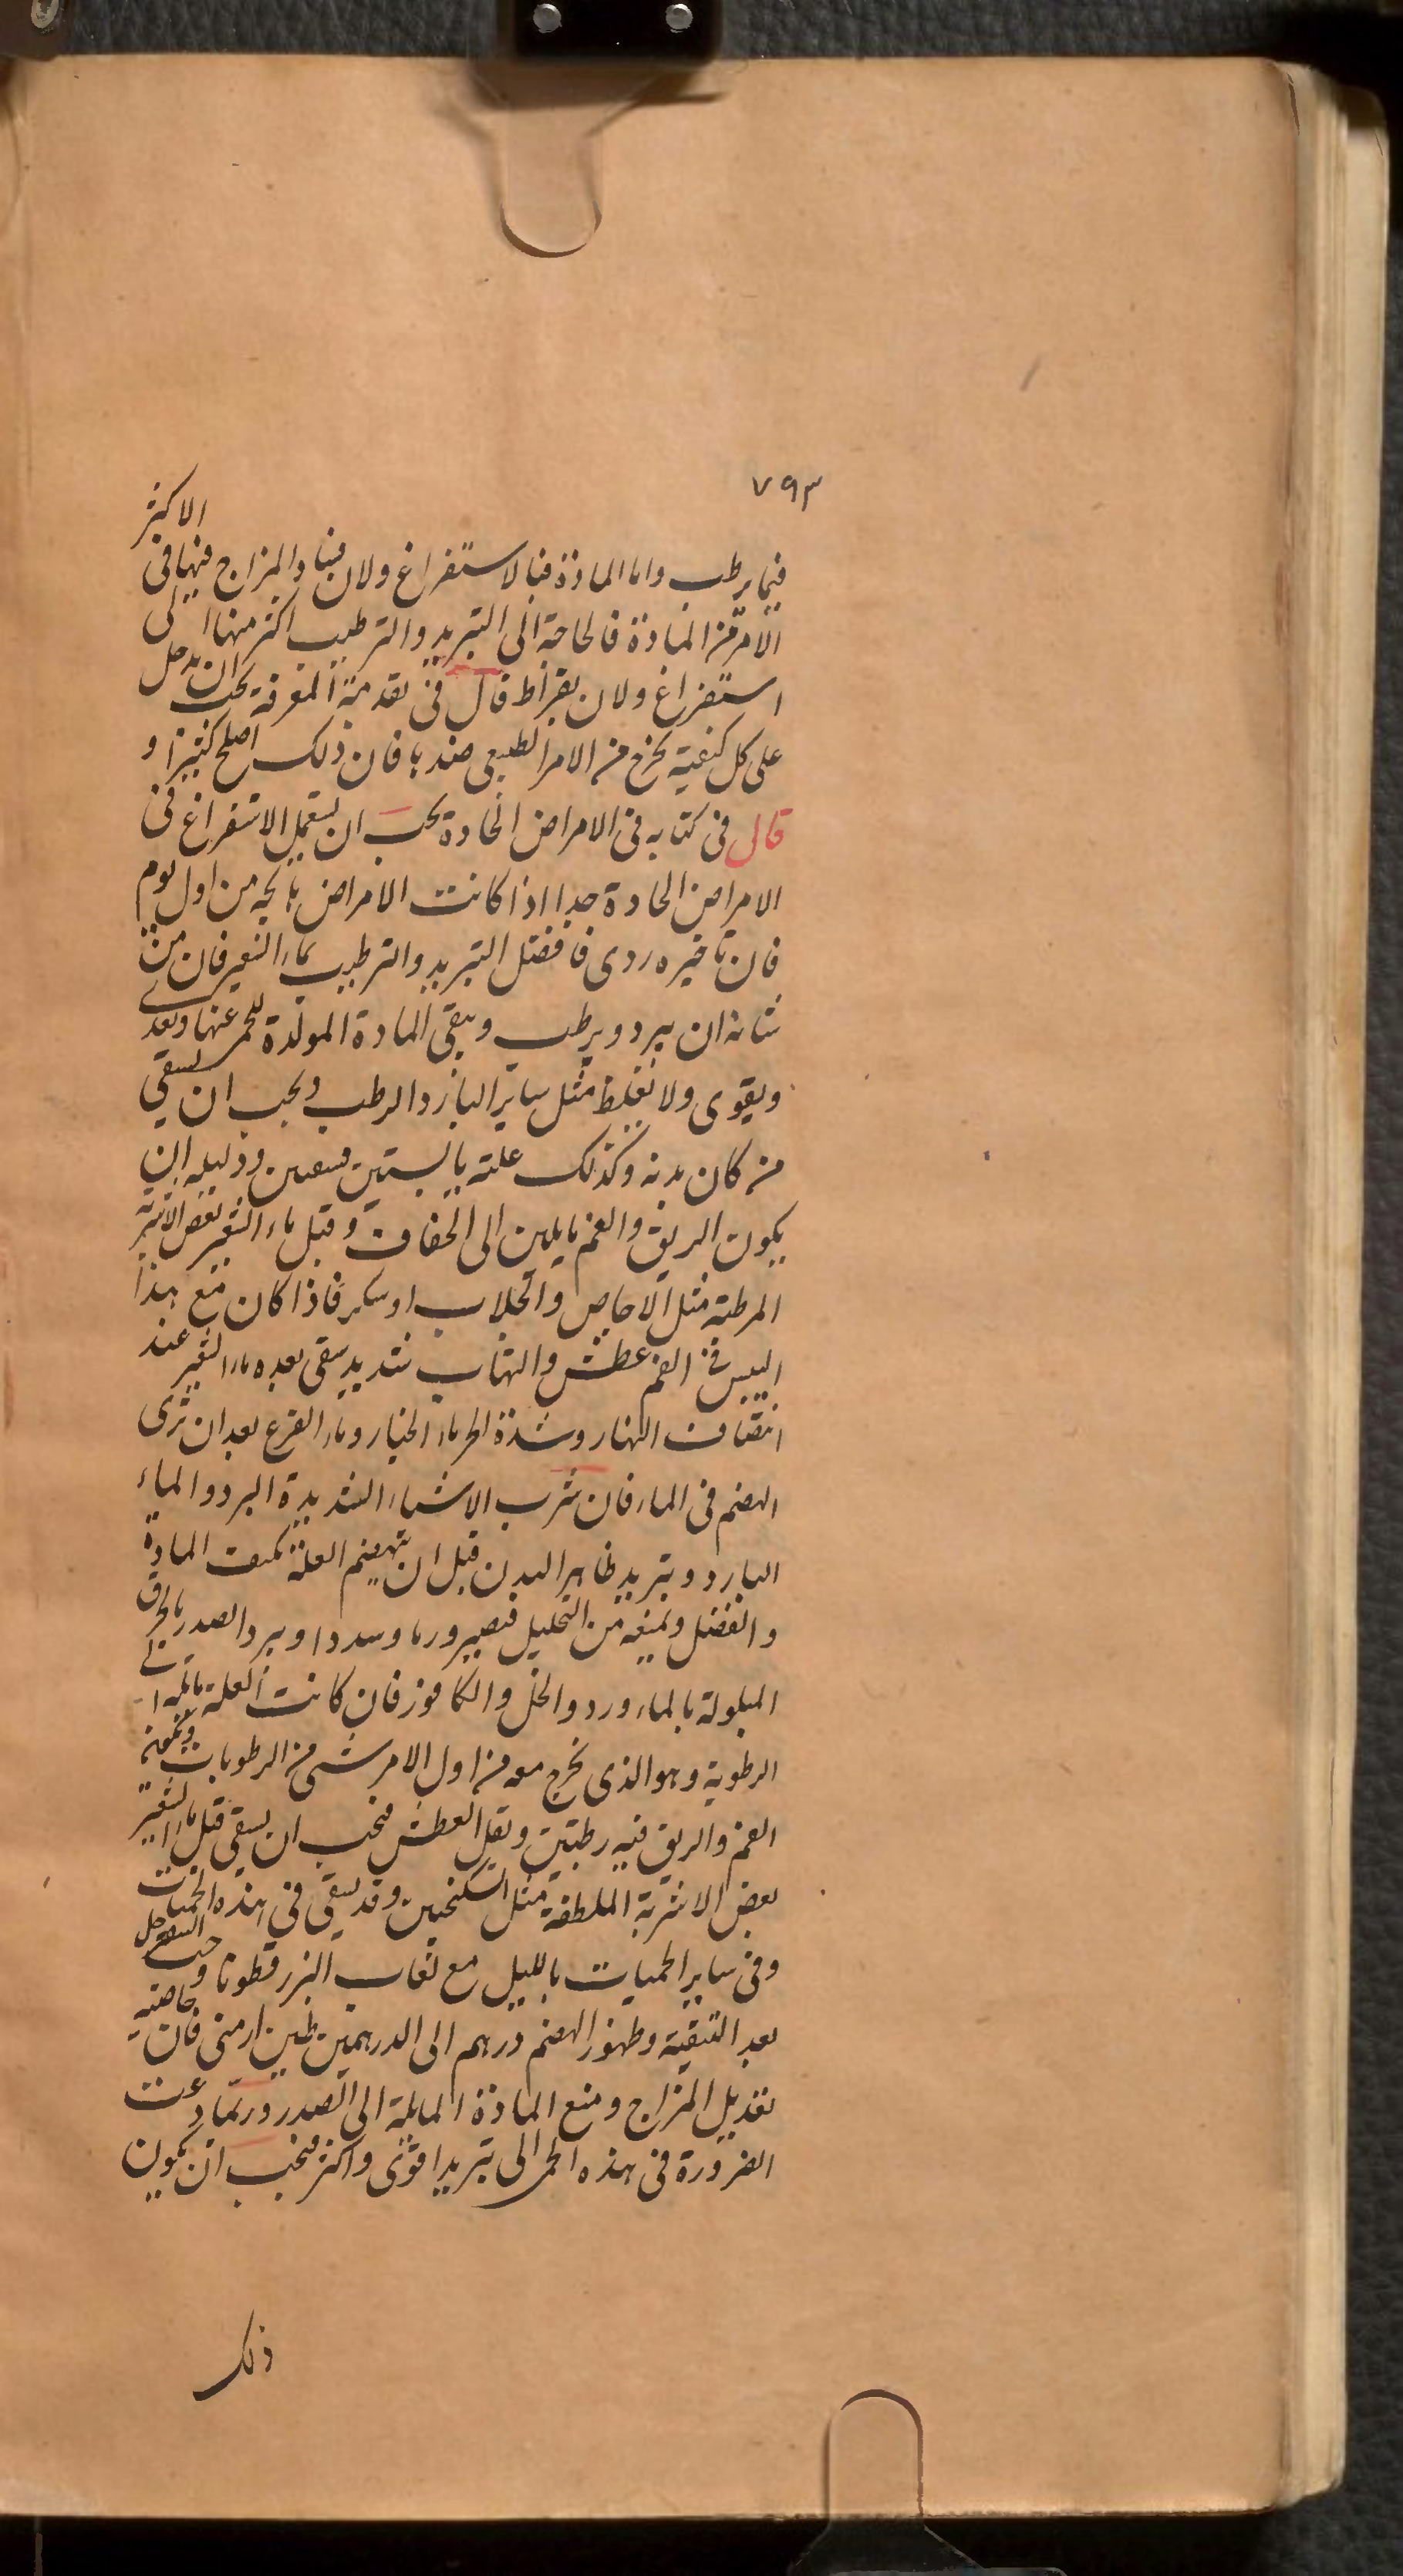 ٧٩٣
فيما يرطب واما المادة فبالاستفراغ ولان فساد المزاج فيها فى الاكثر
الامر من المادة فالحاجة الى التبريد والترطيب اكثر منها الى
استفراغ ولان بقراط قال فى تقدمة المعرفة يجب ان يدخل
على كل كيفية يخرج من الامر الطبيعى ضدها فان ذلك اصلح كثيرا و
قال فى كتابه فى الامراض الحادة يجب ان يستعمل الاستفراغ فى
الامراض الحادة جدا اذا كانت الامراض هايجه من اول يوم
فان تاخيره ردى فافضل التبريد والترطيب بماء الشعير فان من
شانه ان يبرد ويرطب وينقى المادة المولدة للحمى عنها ويغدى
ويقوى ولا يغلظ مثل ساير البارد الرطب ويجب ان يسقى
من كان بدنه وكذلك علته يابستين ودليله ان
يكون الريق والفم مايلين الى الجفاف وقبل ماء الشعير بعض الاشربة
المرطبه مثل الاجاص والجلاب او سكر فاذا كان مع هذا
اليبس فى الفم عطش والتهاب شديد يسقى بعده ماء الشعير عند
انتصاف النهار وشدة الحر ماء الخيار وماء القرع بعد ان ترى
الهضم فى الماء فان شرب الاشياء الشديدة البرد والماء
البارد وتبريد ظاهر البدن قبل ان ينهضم العلة المادة
والفضل ويمنعه من التحليل فتصير ورما وسددا ويبرد الصدر بالخرق
المبلولة بالماء ورد والخل والكافور فان كانت العلة مايلة الى
الرطوبة وهو الذى يخرج معه من اول الامر شى من الرطوبات ويكون
الفم والريق فيه رطبتين ويقل العطش فيجب ان يسقى قبل ماء الشعير
بعض الاشربة الملطفة مثل السكنجبين وقد يسقى فى هذه الحميات
وفى ساير الحميات بالليل مع لعاب البزر قطونا و حب السفرجل
بعد التنقية وظهور الهضم درهم الى الدرهمين طين ارمنى فان خاصته
تعديل المزاج ومنع المادة المايلة الى الصدر وربما دعت
الضرورة فى هذه الحمى الى تبريد اقوى واكثر فيجب ان يكون
ذلك